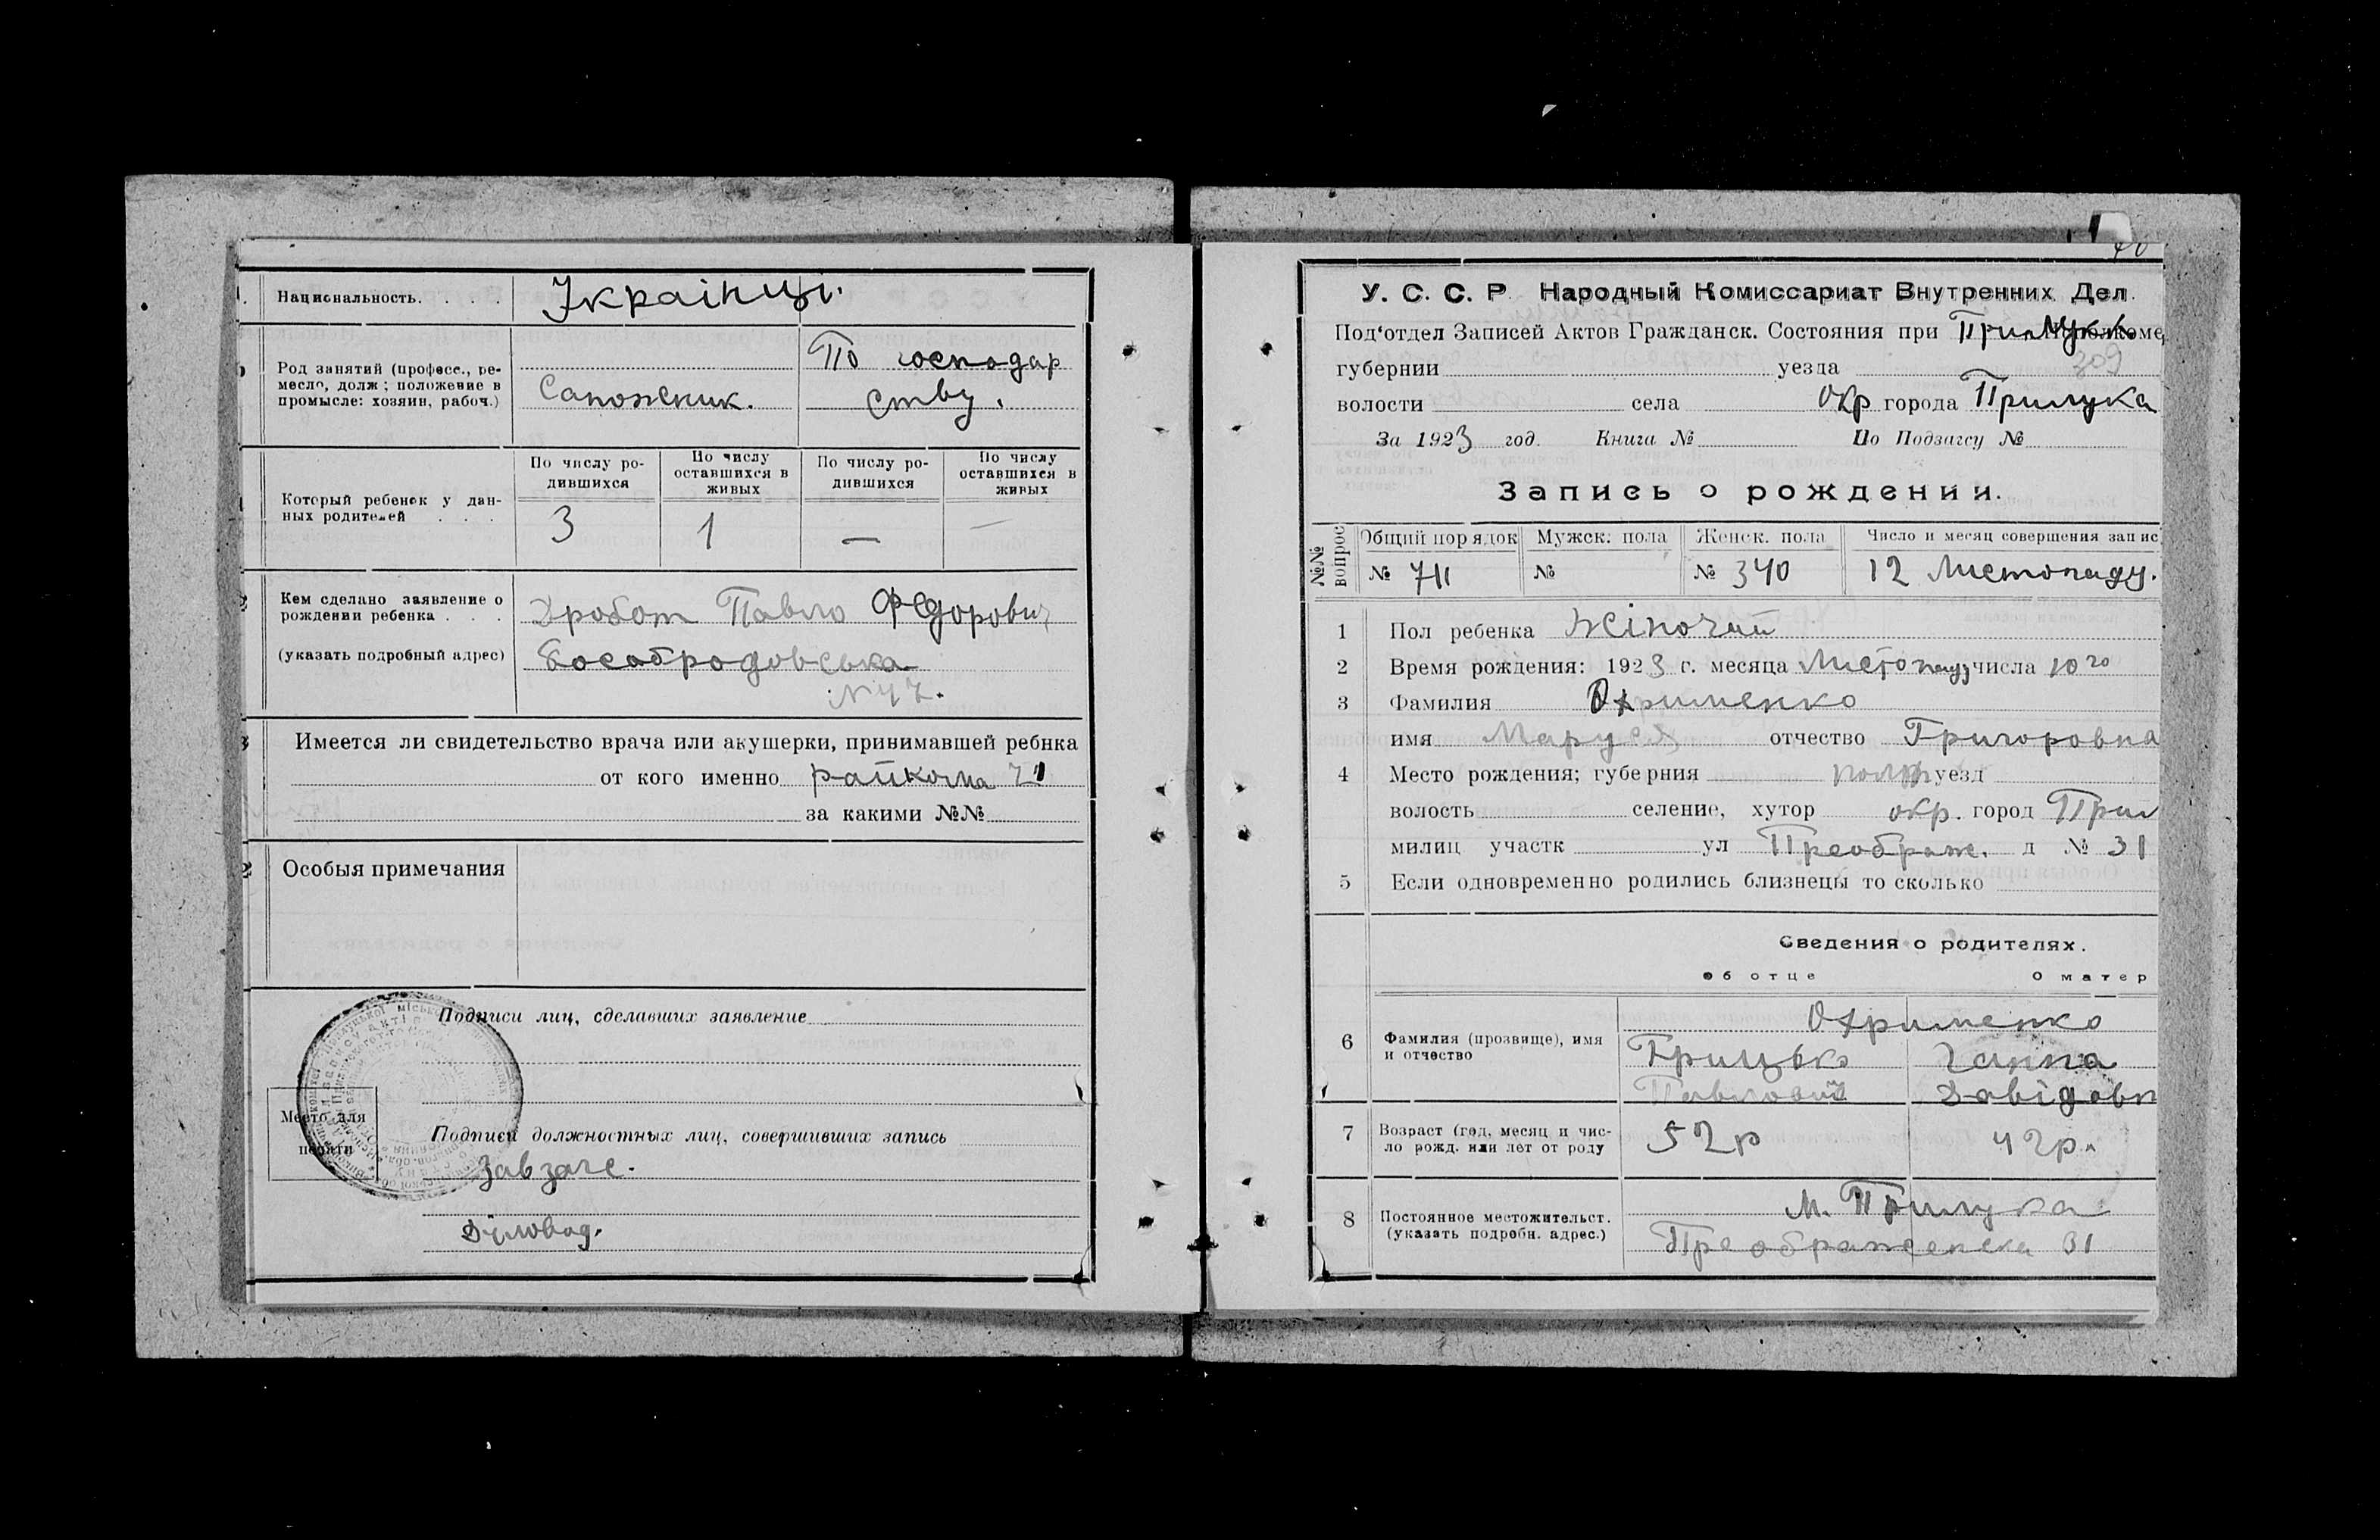 Национальность. . . . Українці.
Род занятий (професс., ре-
месло, долж; положение в
промысле: хозяин, рабоч.)
Сапожник.
По господар
ству.
Который ребенок у дан-
ных родителей . . .
По числу ро-
дившихся
По числу
оставшихся в
живых
По числу ро-
дившихся
По числу
оставшихся в
живых
3 1 — —
Кем сделано заявление о
рождении ребенка . . .
(указать подробный адрес)
Дробот Павло Федорович
№ 47.
Имеется ли свидетельство врача или акушерки, принимавшей ребнка
от кого именно райкома
за какими №№
Особыя примечания
Подписи лиц, сделавших заявление
Место для
печати
Подписи должностных лиц, совершивших запись
Завзагс.
Діловод.
У. С. С. Р. Народный Комиссариат Внутренних Дел.
Под‘отдел Записей Актов Гражданск. Состояния при
губернии уезда 309
волости села окр города Прилука
За 1923 год. Книга № По Подзагсу №
Запись о рождении.
№№
вопрос
Общий порядок Мужск. пола Женск. пола Число и месяц совершения запис
№ 711 № № 340 12 Листопаду.
1 Пол ребенка Жіночий
2 Время рождения: 1923 г. месяца Листопаду числа 10го
3 Фамилия Охрименко
имя Маруся отчество Григоровна
4 Место рождения; губерния Полт уезд
волость селение, хутор окр. город Прил
милиц участк ул Преображ. д № 31
5 Если одновременно родились близнецы то сколько
Сведения о родителях.
об отце О матер
6 Фамилия (прозвище), имя
и отчество
Охрименко
Грицько Ганна
Павлович Давідовн
7 Возраст (год, месяц и чис-
ло рожд. или лет от роду
52р 42р.
8 Постоянное местожительст.
(указать подробн. адрес.)
М. Прилука
Преображенска 31